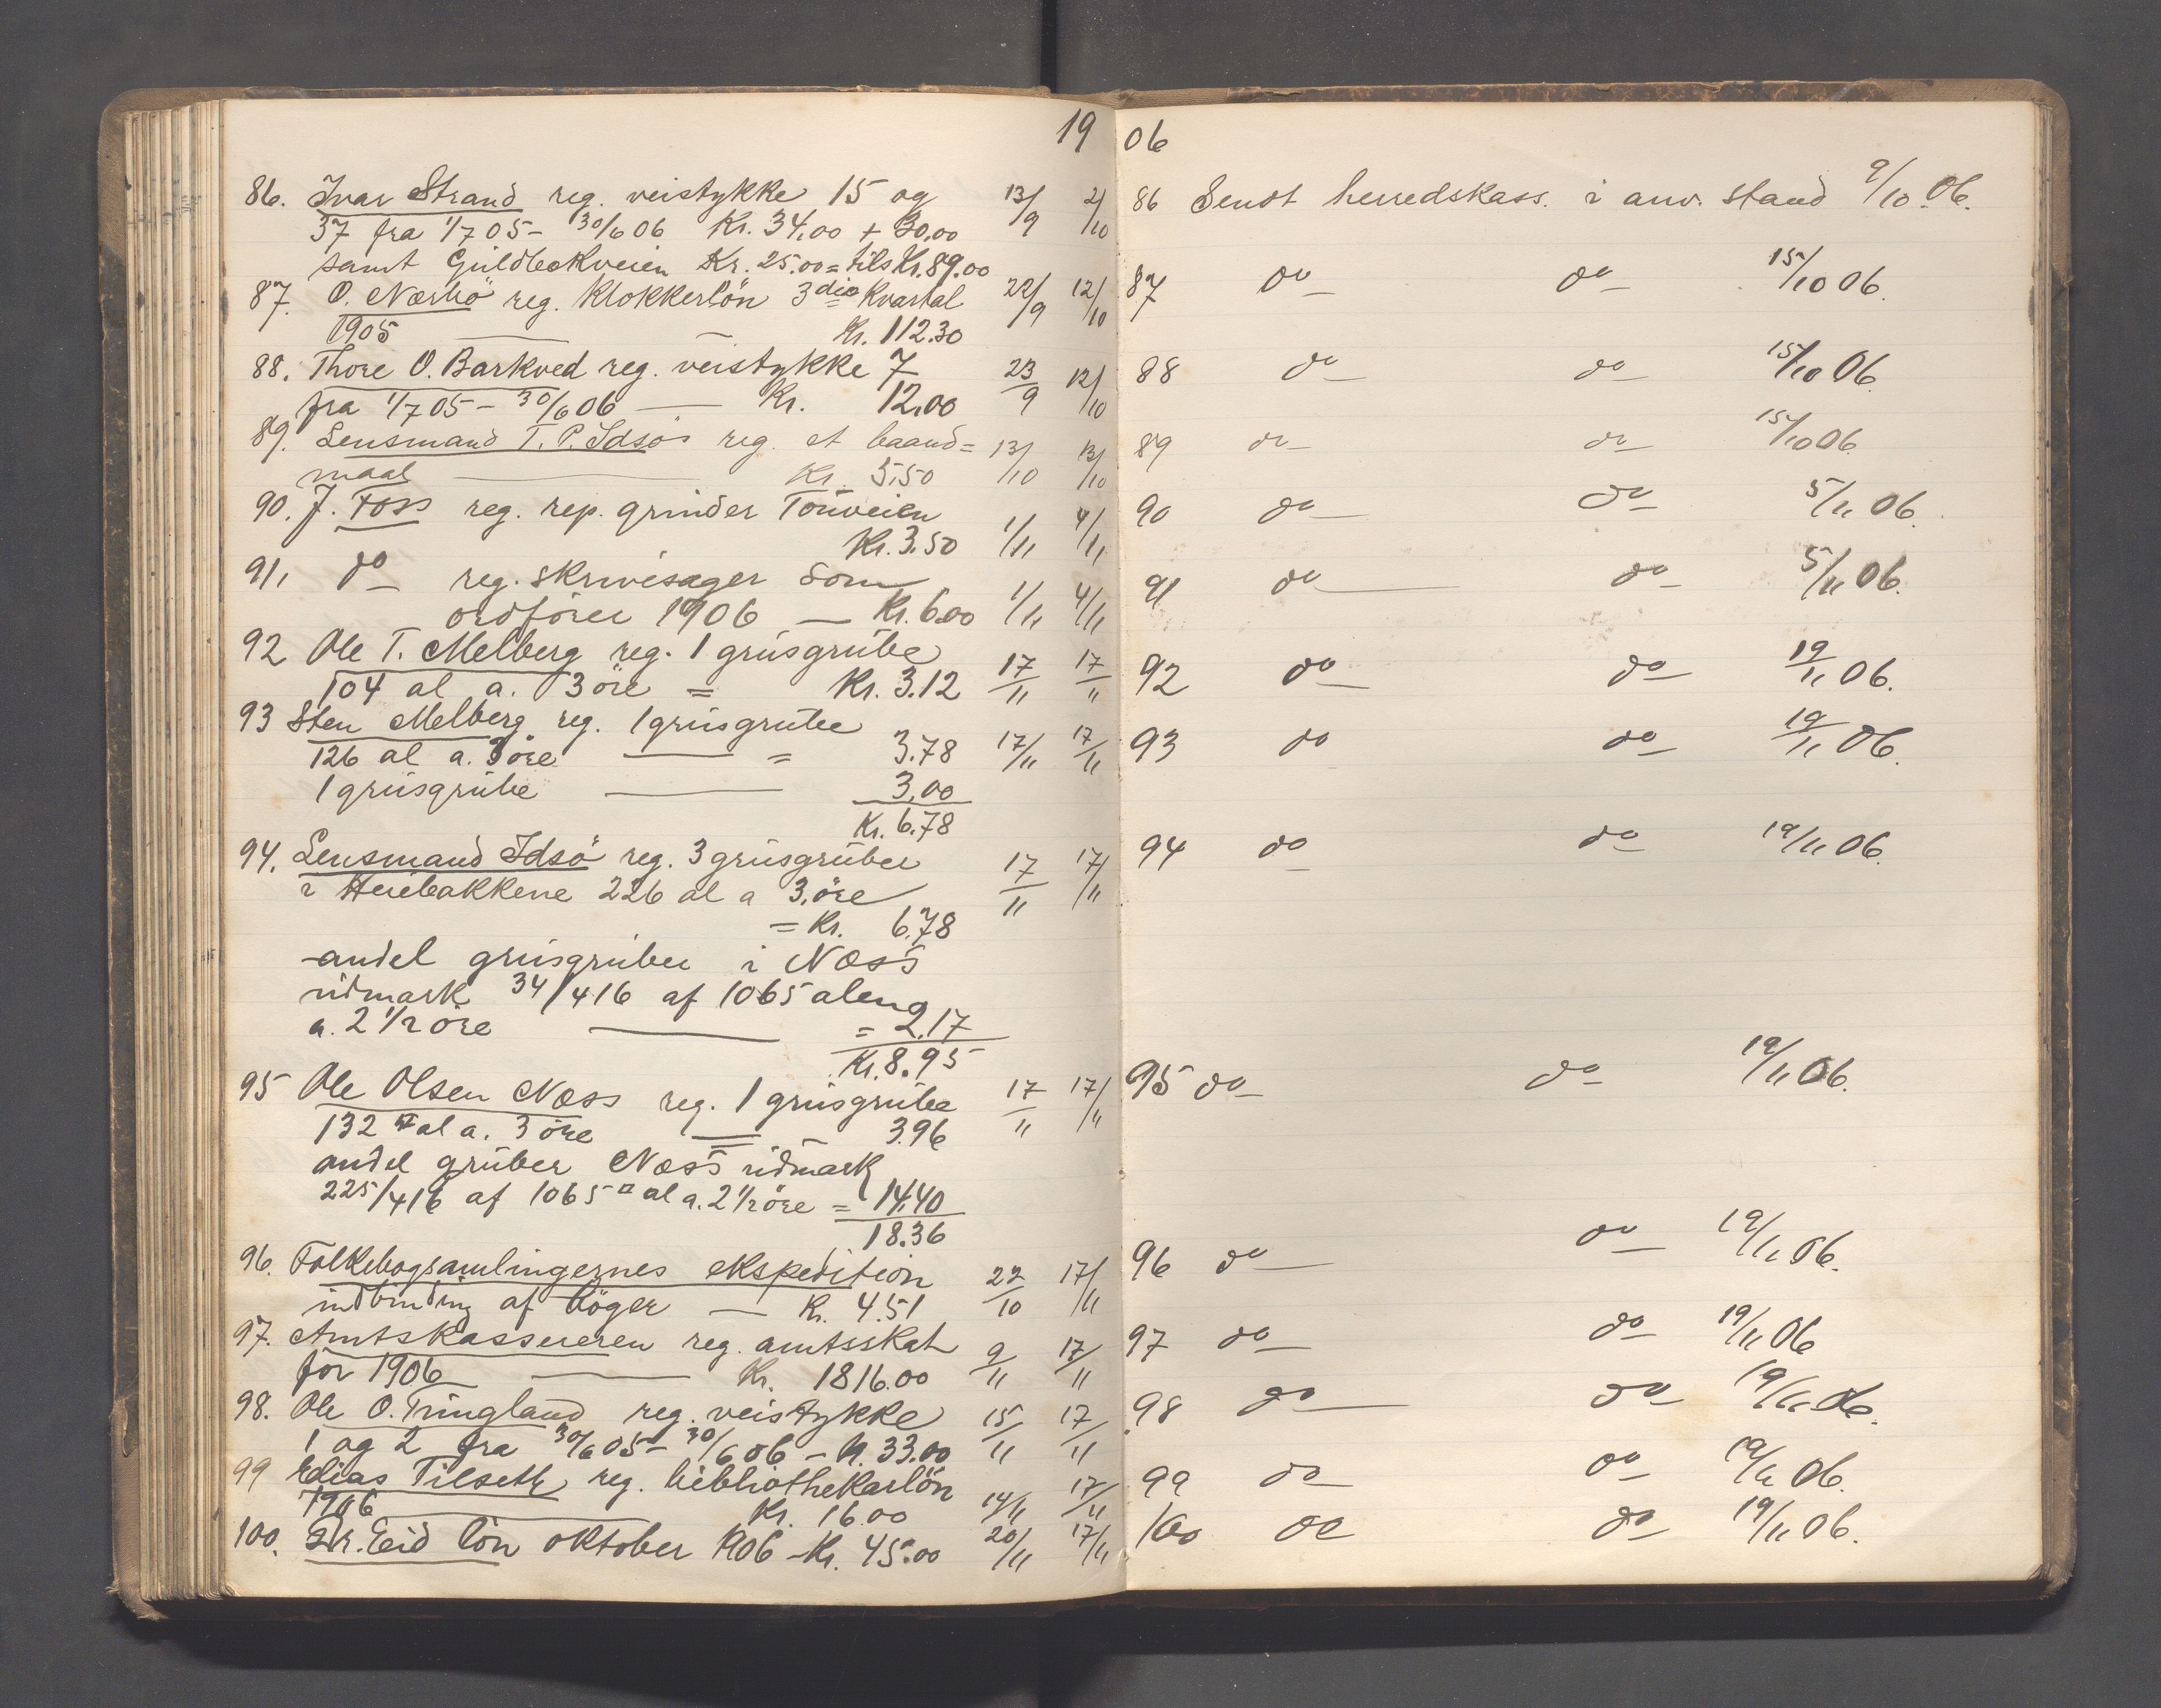 19 06
86. Ivar Strand reg. veistykke 15 og 13/9 2/10
37 fra 1/7 05 - 30/6 06 Kr. 34,00 + 30,00
samt Guldbekveien Kr. 25.00 = tils Kr. 89.00
87. O. Nærbö reg. Klokkerlön 3die Kvartal 22/9 12/10
1905 — Kr. 112.30
88. Thore O. Barkved reg. veistykke 7 23/9 12/10
fra 1/7 05 - 30/6 06 — Kr. 12,00
89. Lensmand T. P. Idsös reg. et baand= 13/10 13/10
maal — Kr. 5,50
90. J. Foss reg. rep. grinder Touveien
Kr. 3.50 1/11 4/11
91, do reg. skrivesager som
ordförer 1906 — Kr. 6.00 1/11 4/11
92 Ole T. Melberg reg. 1 grusgrube
104 al a. 3 öre = Kr. 3.12 17/11 17/11
93 Sten Melberg reg. 1 grusgrube
126 al a. 3 öre — = 3.78 17/11 17/11
1 grusgrube — 3,00
Kr. 6.78
94. Lensmand Idsö reg. 3 grusgruber 17/11 17/11
i Heiebakkene 226 al a 3, öre
= Kr. 6.78
andel grusgruber i Næss
udmark 34/416 af 1065 alen
a. 2 1/2 öre — = 2,17
Kr. 8.95
95 Ole Olsen Næss reg. 1 grusgrube 17/11 17/11
132 □ al a. 3 öre = 3.96
andel gruber Næss udmark
225/416 af 1065 □ al a. 2 1/2 öre = 14,40
18.36
96. Folkebogsamlingernes ekspedition 22/10 17/11
indbinding af böger — Kr. 4.51
97. Amtskassereren reg. amtsskat 9/11 17/11
for 1906 — Kr. 1816.00
98. Ole O. Tringland reg. veistykke 15/11 17/11
1 og 2 fra 30/6 05 - 30/6 06 - Kr. 33.00
99 Elias Tilseth reg. bibliothekarlön
1906 — Kr. 16.00 14/11 17/11
100. Dr. Eid lön oktober 1906 - Kr. 45.00 20/11 17/11
86 Sendt herredskass. i anv. stand 9/10 06.
87 do do 15/10 06.
88 do do 15/10 06.
89 do do 15/10 06.
90 do do 5/11 06.
91 do do 5/11 06.
92 do do 19/11 06.
93 do do 19/11 06.
94 do do 19/11 06.
95 do do 19/11 06.
96 do do 19/11 06.
97 do do 19/11 06
98 do do 19/11 06.
99 do do 19/11 06.
100 do do 19/11 06.